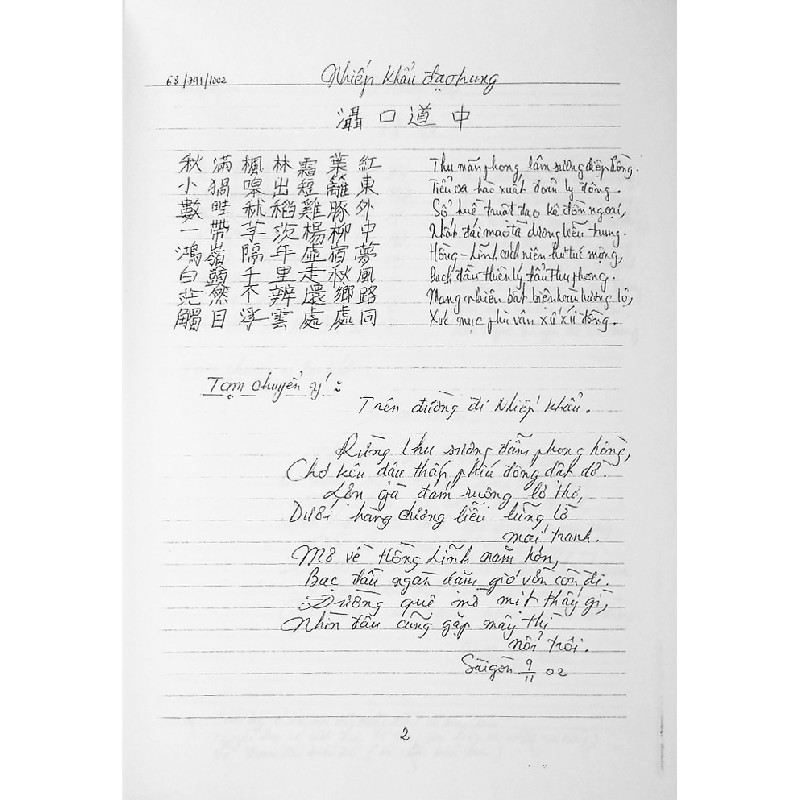 68/791/1002
Nhiếp Khẩu đạo trung
灄口道中
秋滿楓林霜葉紅
小猧嗥出短籬東
數畦秫稻雞豚外
一帶茅茨楊柳中
鴻嶺隔年虛宿夢
白頭千里走秋風
茫然不辨還鄉路
觸目浮雲處處同
Thu mãn phong lâm sương diệp hồng.
Tiểu oa hào xuất đoản ly đông.
Số huề truật đạo kê đồn ngoại,
Nhất đái mao tì dương liễu trung.
Hồng-lĩnh cách niên hư túc mộng,
Bạch đầu thiên lý tẩu thu phong.
Mang nhiên bất biện hoàn hương lộ,
Xúc mục phù vân xứ xứ đồng.
Tạm chuyển ý:
Trên đường đi Nhiếp Khẩu.
Rừng thu sương đẫm phong hồng,
Chó kêu dậu thấp phía đông
Lợn gà đám ruộng
Dưới hàng dương liễu
mái tranh.
Mơ về Hồng Lĩnh năm
Bạc đầu ngàn dặm gió vẫn còn đi.
Đường quê mờ mịt thấy gì,
Nhìn đâu cũng gặp mây thì
nổi trôi.
Sàigòn 9/11 02
2